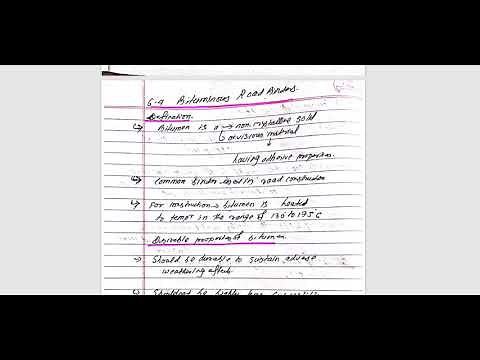 6.4 Bituminous Road Binders.
Defination.
↳ Bitumen is a → non crystalline solid
↳ or viscous material
↓
having adhesive properties
↳ Common binder used in road construction
↳ For construction → bitumen is heated
to tempr in the range of 130° to 175°C
Desirable properties of bitumen.
→ Should be durable to sustain adverse
weathering effect
→ Shouldnot be highly